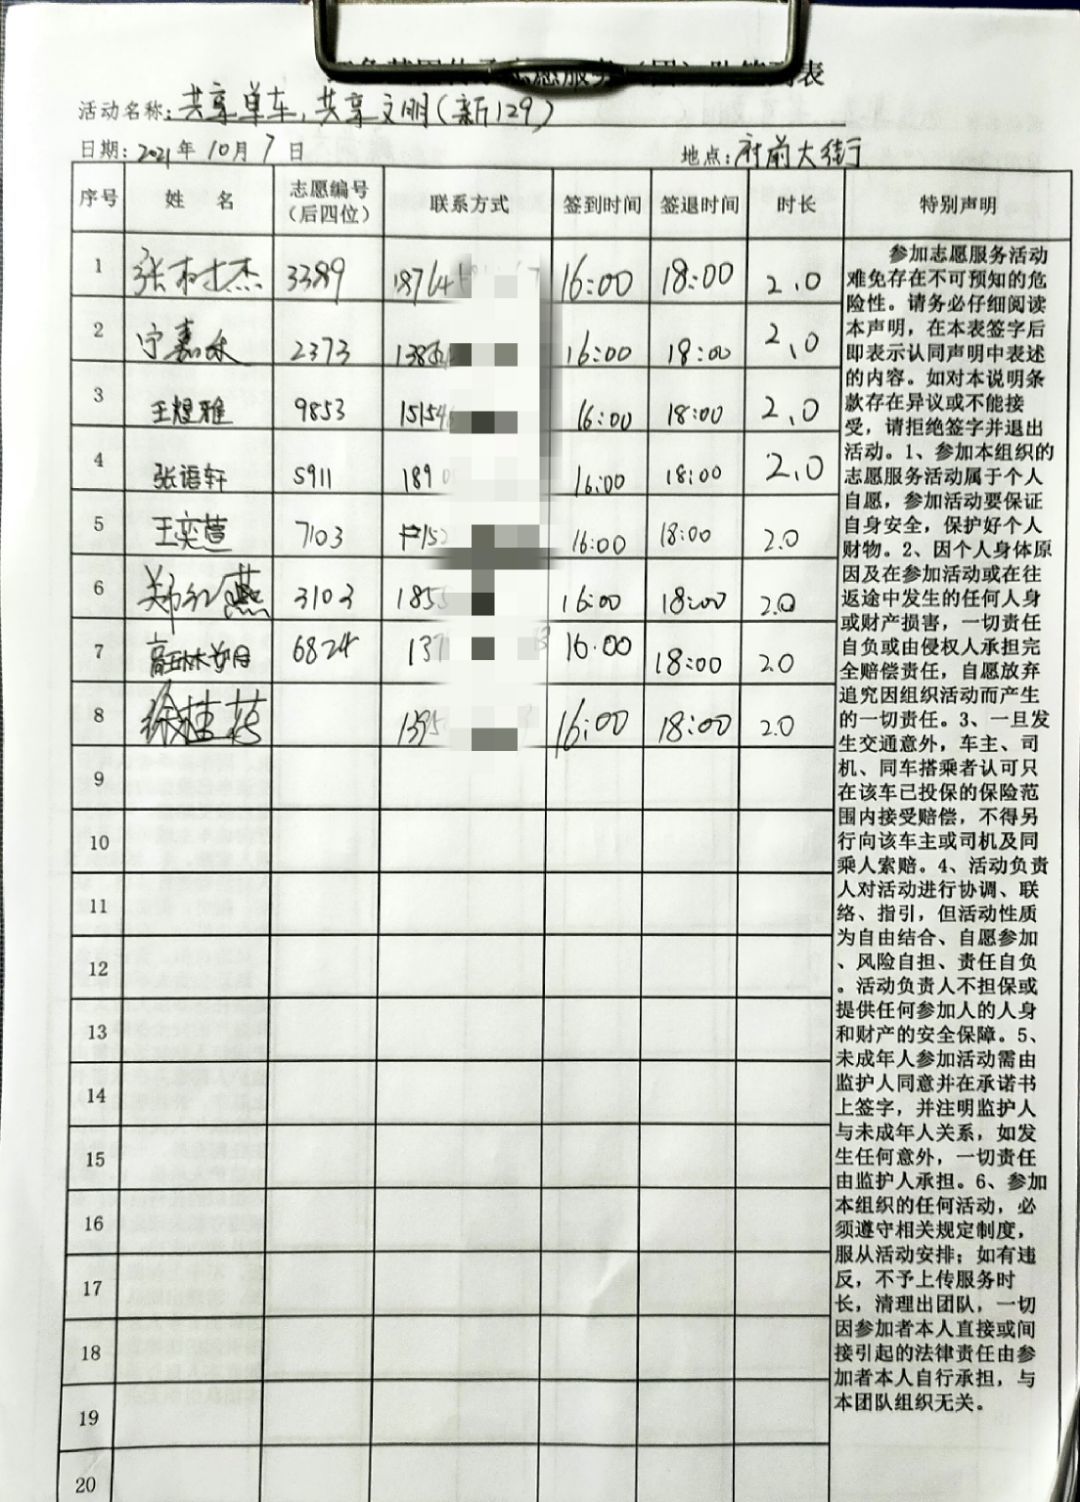 志愿服务（团）队签到表
活动名称：共享单车，共享文明（新129）
日期：2021年10月7日 地点：府前大街
序号 姓 名 志愿编号（后四位） 联系方式 签到时间 签退时间 时长 特别声明
1 张 杰 3389 1876 16:00 18:00 2.0
2 宁嘉 2373 138 16:00 18:00 2.0
3 王煜雅 9853 15154 16:00 18:00 2.0
4 张语轩 5911 189 16:00 18:00 2.0
5 王奕萱 7103 152 16:00 18:00 2.0
6 郑红燕 3103 185 16:00 18:00 2.0
7 高 6824 137 16:00 18:00 2.0
8 徐桂 139 16:00 18:00 2.0
9
10
11
12
13
14
15
16
17
18
19
20
参加志愿服务活动
难免存在不可预知的危
险性。请务必仔细阅读
本声明，在本表签字后
即表示认同声明中表述
的内容。如对本说明条
款存在异议或不能接
受，请拒绝签字并退出
活动。1、参加本组织的
志愿服务活动属于个人
自愿，参加活动要保证
自身安全，保护好个人
财物。2、因个人身体原
因及在参加活动或在往
返途中发生的任何人身
或财产损害，一切责任
自负或由侵权人承担完
全赔偿责任，自愿放弃
追究因组织活动而产生
的一切责任。3、一旦发
生交通意外，车主、司
机、同车搭乘者认可只
在该车已投保的保险范
围内接受赔偿，不得另
行向该车主或司机及同
乘人索赔。4、活动负责
人对活动进行协调、联
络、指引，但活动性质
为自由结合、自愿参加
、风险自担、责任自负
。活动负责人不担保或
提供任何参加人的人身
和财产的安全保障。5、
未成年人参加活动需由
监护人同意并在承诺书
上签字，并注明监护人
与未成年人关系，如发
生任何意外，一切责任
由监护人承担。6、参加
本组织的任何活动，必
须遵守相关规定制度，
服从活动安排；如有违
反，不予上传服务时
长，清理出团队，一切
因参加者本人直接或间
接引起的法律责任由参
加者本人自行承担，与
本团队组织无关。